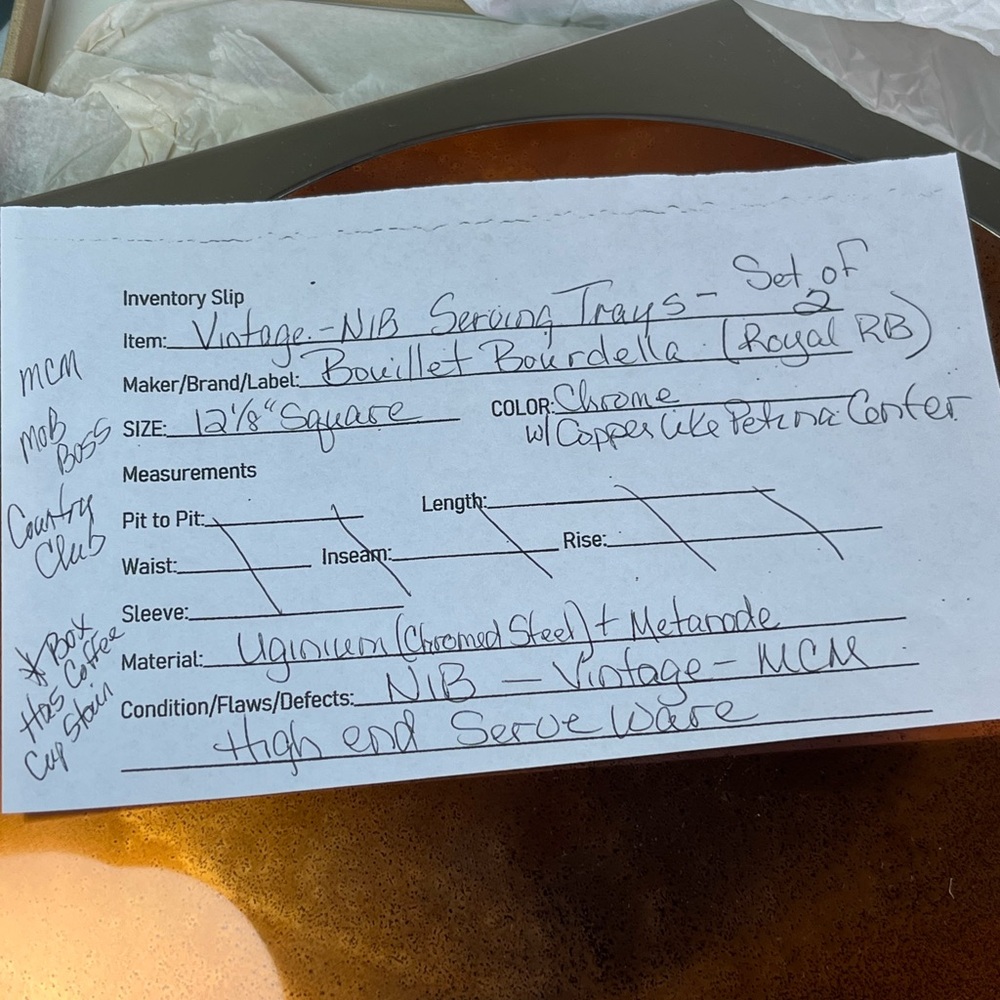 Inventory Slip
Item: Vintage - NIB Serving Trays - Set of 2
Maker/Brand/Label: Bouillet Bourdella (Royal RB)
SIZE: 12 1/8" Square COLOR: Chrome
w/ Copper Like Petina Center
Measurements
Pit to Pit: Length:
Waist: Inseam: Rise:
Sleeve:
Material: Uginium (Chromed Steel) + Metanode
Condition/Flaws/Defects: NIB - Vintage - MCM
High end Serve Ware
MCM
Mob
Boss
Country
Club
* Box
Has Coffee
Cup Stain